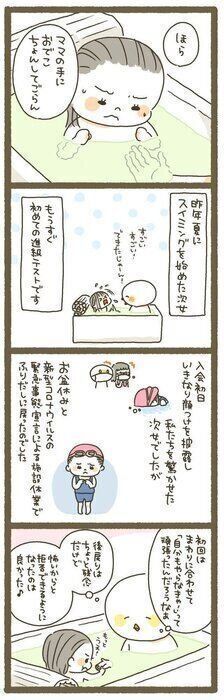 ほら
ママの手に
おでこ
ちょんしてごらん
昨年夏に
スイミングを始めた次女
すごい
すごい!
できたじゃーん!
もうすぐ
初めての進級テストです
入会初日
いきなり顔つけを披露し
私たちを驚かせた
次女でしたが
お盆休みと
新型コロナウイルスの
緊急事態宣言による施設休業で
ふりだしに戻ったのでした
初回は
まわりに合わせて
「自分もやらなきゃ!」って
頑張ったんだろうなぁ
後戻りは
ちょっと残念
だけど
怖いからと
拒否できるように
なったのは
良かった♪